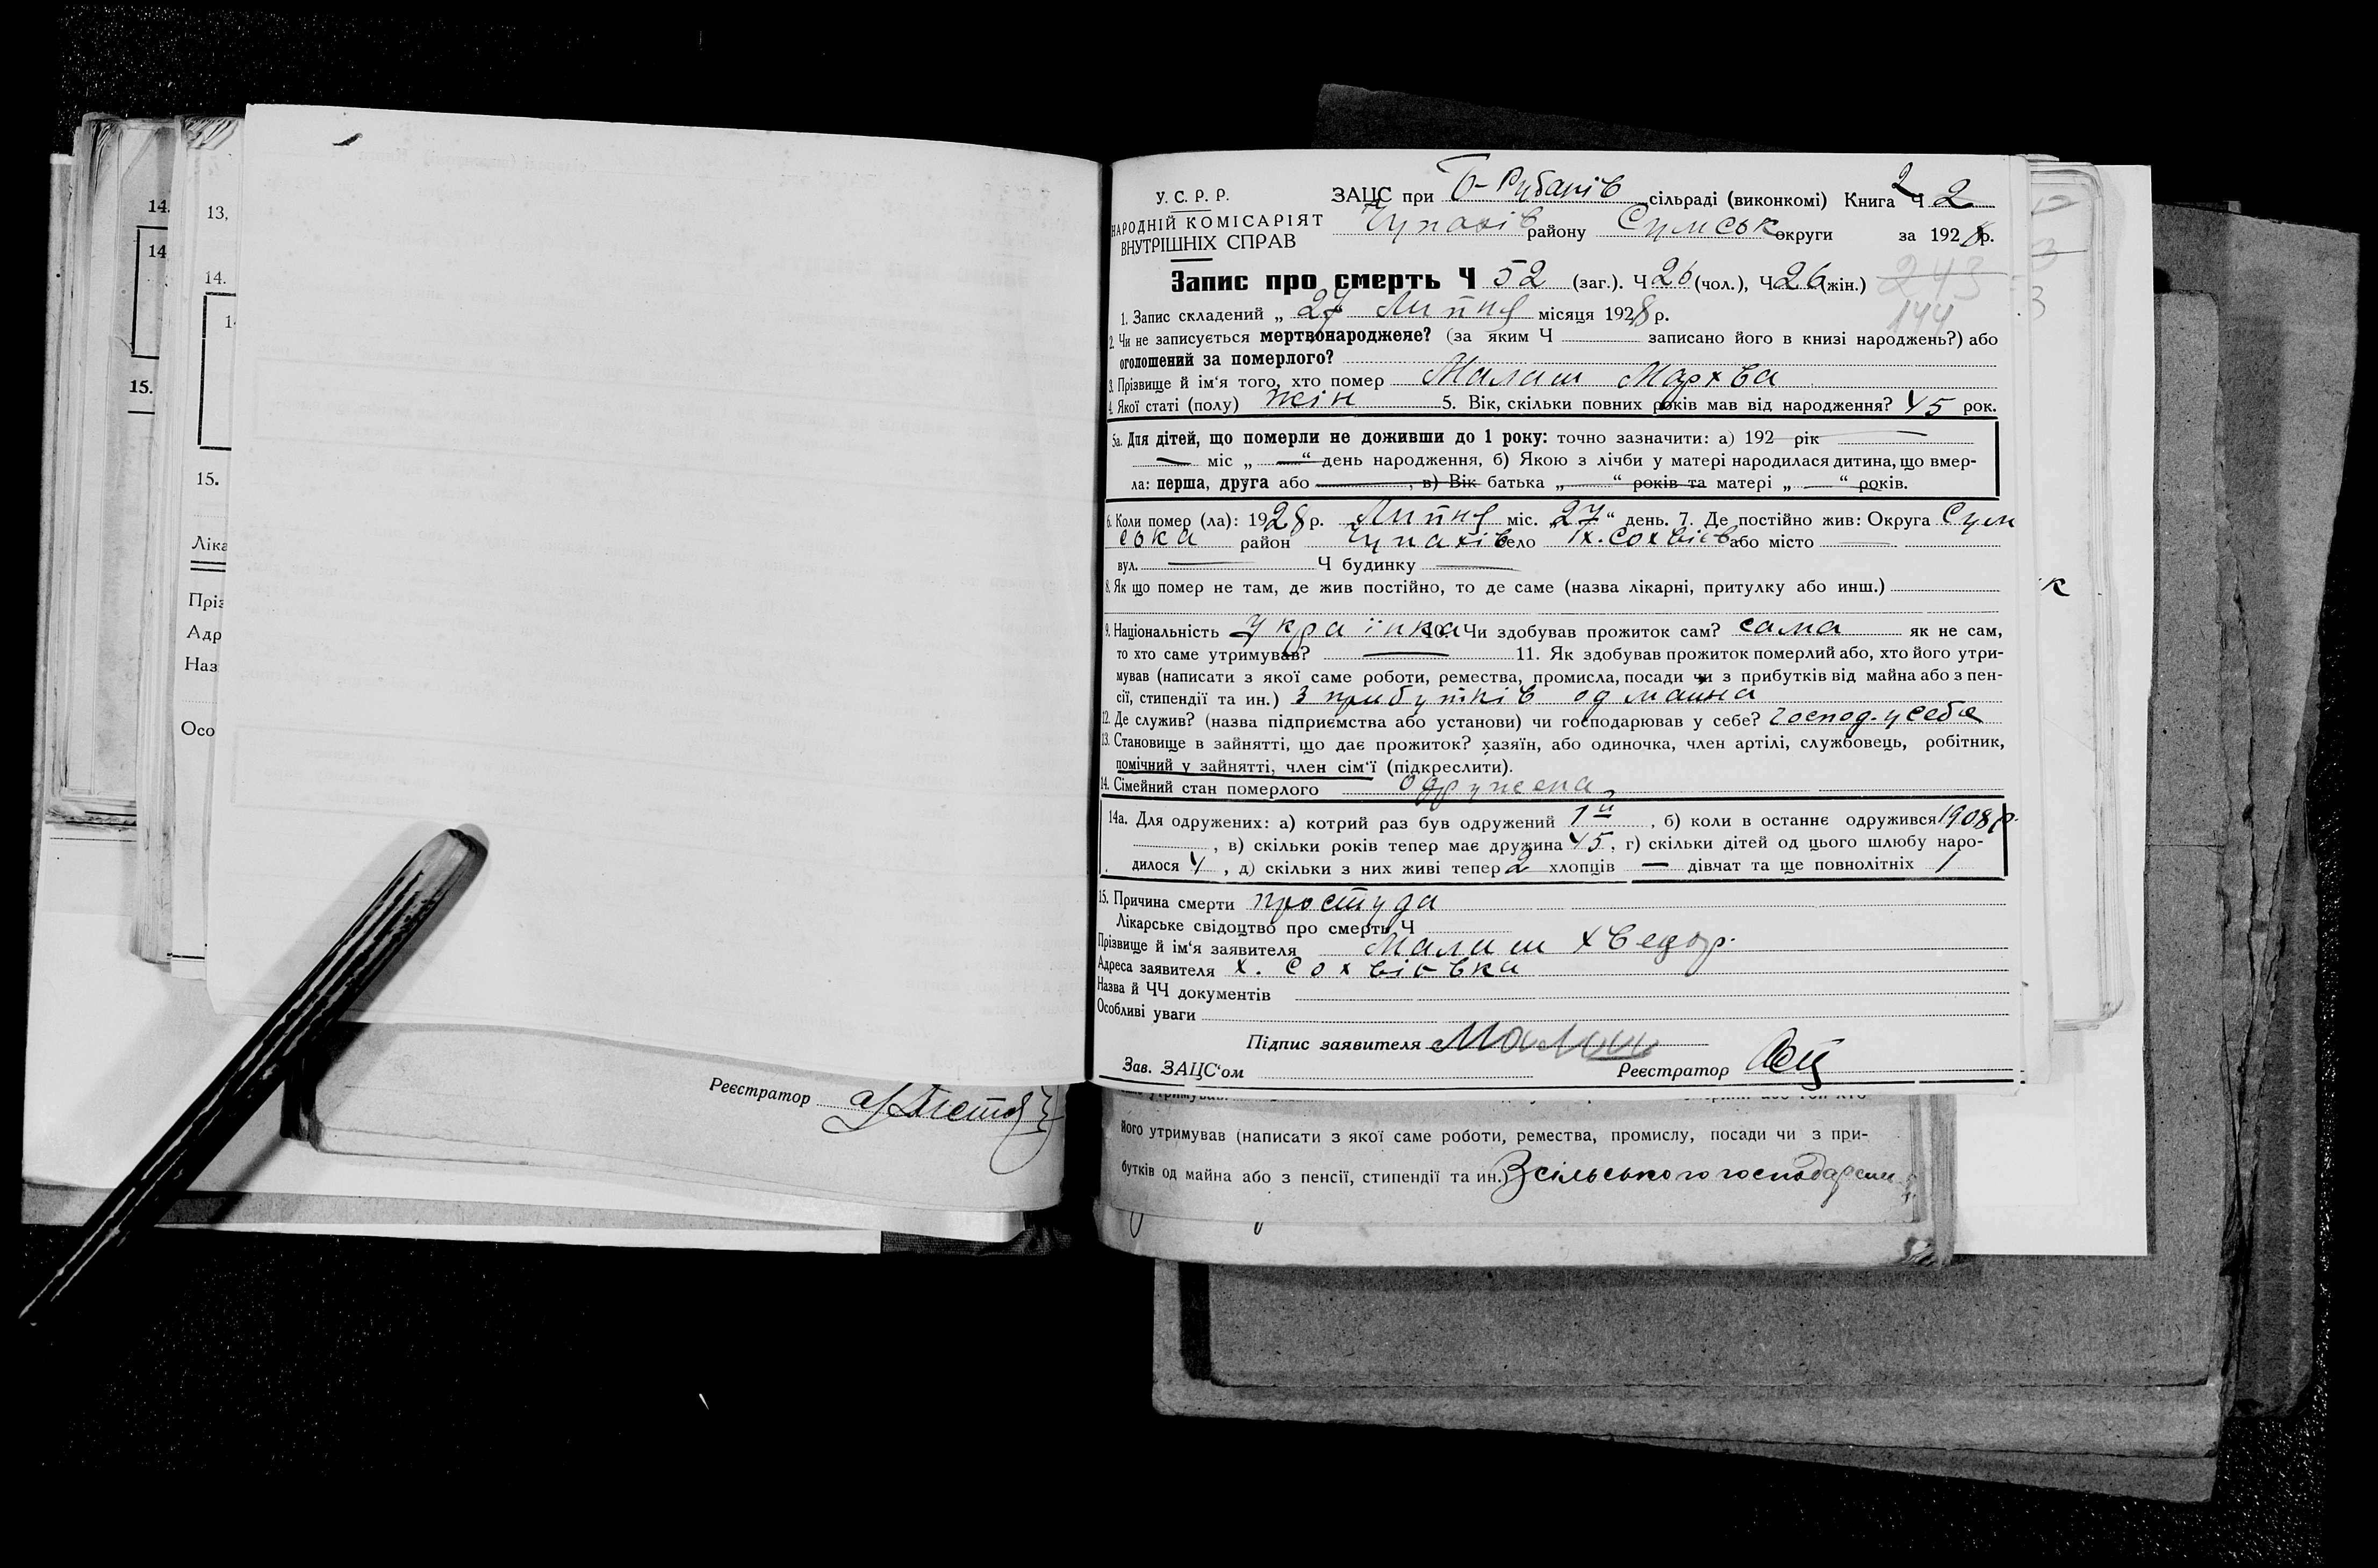 14.
13,
14
14.
14
15.
15.
Ліка
Пріз
Адр
Наз
Осо
Реєстратор
У. С. Р. Р.
НАРОДНІЙ КОМІСАРІЯТ
ВНУТРІШНІХ СПРАВ
ЗАЦС при Б-Рубанів сільраді (виконкомі) Книга 2 Ч 2
Чупахів району Сумськ округи за 1928 р.
Запис про смерть Ч 52 (заг.). Ч 26 (чол.), Ч 26 (жін.)
243
144
1. Запис складений „ 27 Липня місяця 1928 р.
2. Чи не записується мертвонароджене? (за яким Ч записано його в книзі народжень?) або
оголошений за померлого?
3. Прізвище й ім‘я того, хто помер Малиш Мархва
4. Якої статі (полу) жін 5. Вік, скільки повних років мав від народження? 45 рок.
5а. Для дітей, що померли не доживши до 1 року: точно зазначити: а) 192 рік
міс „ “ день народження, б) Якою з лічби у матері народилася дитина, що вмер-
ла: перша, друга або , в) Вік батька „ “ років та матері „ “ років.
6. Коли помер (ла): 1928 р. Липня міс. „27“ день. 7. Де постійно жив: Округа Сум
ська район Чупахів село х. Сохвіїв або місто
вул. Ч будинку
8. Як що помер не там, де жив постійно, то де саме (назва лікарні, притулку або инш.)
9. Національність Українка 10. Чи здобував прожиток сам? сама як не сам,
то хто саме утримував? 11. Як здобував прожиток померлий або, хто його утри-
мував (написати з якої саме роботи, ремества, промисла, посади чи з прибутків від майна або з пен-
сії, стипендії та ин.) З прибутків од майна
12. Де служив? (назва підприємства або установи) чи господарював у себе? господ. у себе
13. Становище в зайнятті, що дає прожиток? хазяїн, або одиночка, член артілі, службовець, робітник,
помічний у зайнятті, член сім‘ї (підкреслити).
14. Сімейний стан померлого одружена
14а. Для одружених: а) котрий раз був одружений 1й, б) коли в останнє одружився 1908 р.
, в) скільки років тепер має дружина 45, г) скільки дітей од цього шлюбу наро-
дилося 4, д) скільки з них живі тепер 2 хлопців — дівчат та ще повнолітніх 1
15. Причина смерти простуда
Лікарське свідоцтво про смерть Ч
Прізвище й ім‘я заявителя Малиш Хведор.
Адреса заявителя х. Сохвіівка
Назва й ЧЧ документів
Особливі уваги
Підпис заявителя Малиш
Зав. ЗАЦС‘ом Реєстратор
його утримував (написати з якої саме роботи, ремества, промислу, посади чи з при-
бутків од майна або з пенсії, стипендії та ин.) З сільського господарств